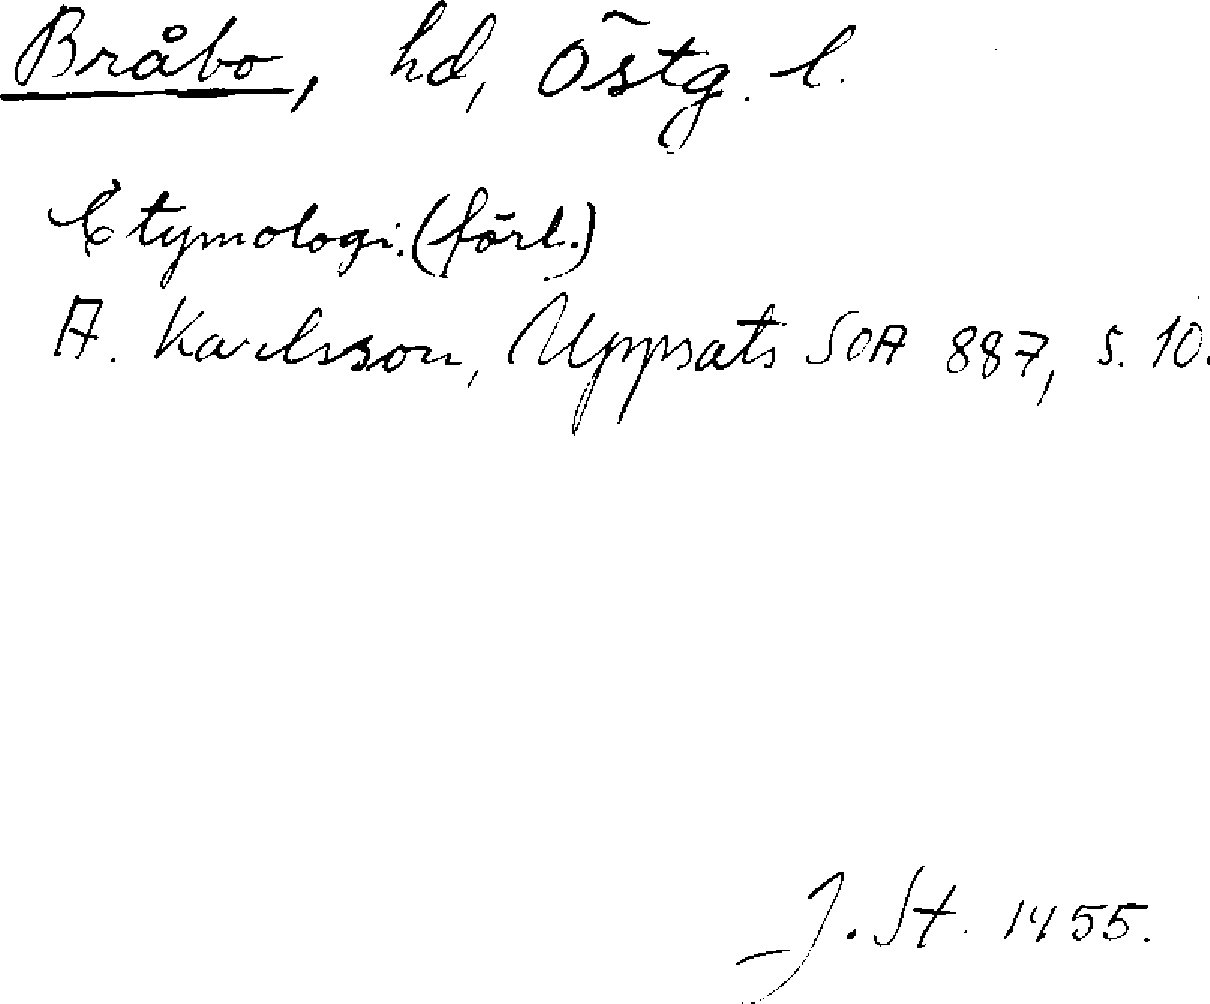 Bråbo, hd, Östg. l.
Etymologi. (förl.)
A. Karlsson, Uppsats SOA 887, s. 10.
J. St. 1455.